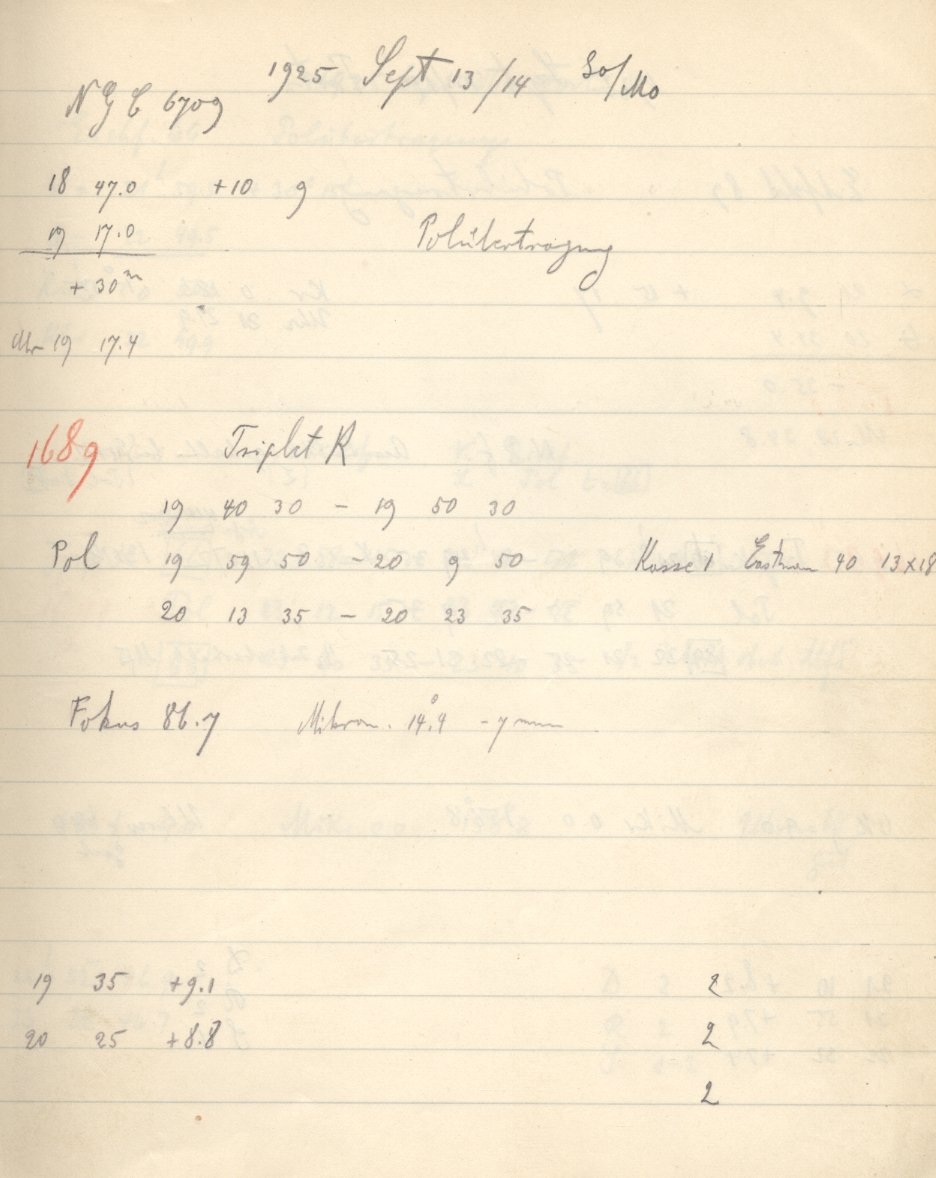 1925 Sept 13/14 So/Mo
NGC 6709
18 47.0 +10 9
19 17.0
Polübertragung
+30m
Uhr 19 17.4
1689 Triplet R
19 40 30 - 19 50 30
Pol 19 59 50 - 20 9 50 Kasse 1 Eastman 40 13x18
20 13 35 - 20 23 35
Fokus 86.7 Mikrom. 14°.4 - 7 mm
19 35 +9.1 2
20 25 +8.8 2
2